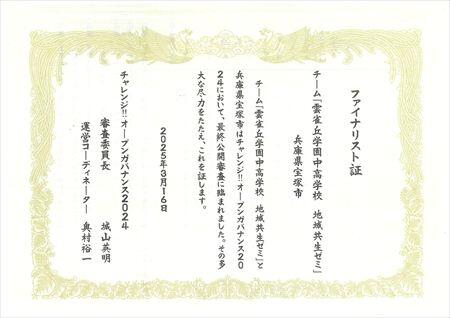 ファイナリスト証
チーム「雲雀丘学園中高学校　地域共生ゼミ」
兵庫県宝塚市
チーム「雲雀丘学園中高学校　地域共生ゼミ」と
兵庫県宝塚市はチャレンジ!!オープンガバナンス20
24において、最終公開審査に臨まれました。その多
大な尽力をたたえ、これを証します。
2025年3月16日
チャレンジ!!オープンガバナンス2024
審査委員長　城山英明
運営コーディネーター　奥村裕一